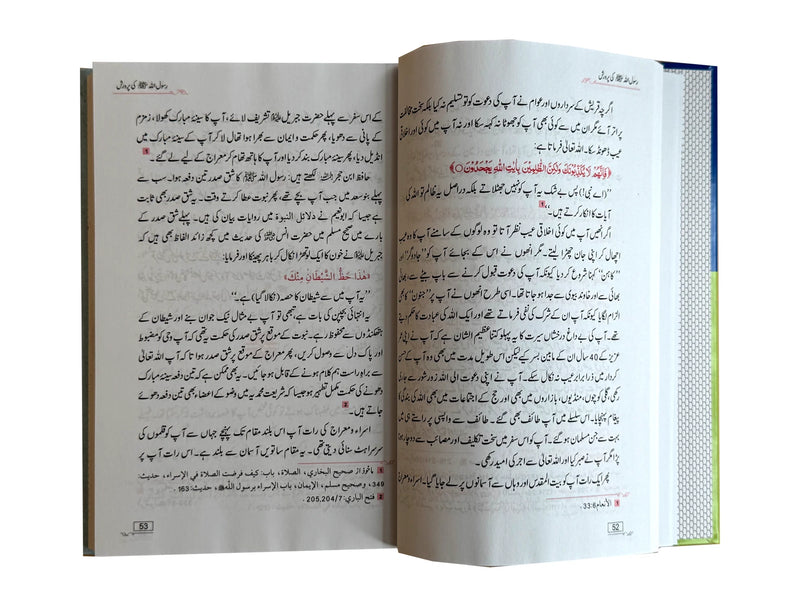 رسول اللہ ﷺ کی پرورش
اگرچہ قریش کے سرداروں اور عوام نے آپ کی دعوت کو تو تسلیم نہ کیا بلکہ سخت مخالفت
پر اتر آئے مگر ان میں سے کوئی بھی آپ کو جھوٹا نہ کہہ سکا اور نہ آپ میں کوئی اور اخلاقی
عیب ڈھونڈ سکا۔ اللہ تعالیٰ فرماتا ہے:
﴿فَإِنَّهُمْ لَا يُكَذِّبُونَكَ وَلَٰكِنَّ الظَّالِمِينَ بِآيَاتِ اللَّهِ يَجْحَدُونَ ○﴾
’’(اے نبی!) پس بے شک یہ آپ کو نہیں جھٹلاتے بلکہ دراصل یہ ظالم تو اللہ کی
آیات کا انکار کرتے ہیں۔‘‘ 1
اگر انھیں آپ میں کوئی اخلاقی عیب نظر آتا تو وہ لوگوں کے سامنے آپ کا وہ عیب
اچھال کر اپنی جان چھڑا لیتے۔ مگر انھوں نے اس کے بجائے آپ کو ’’جادوگر‘‘ اور
’’کاہن‘‘ کہنا شروع کر دیا کیونکہ آپ کی دعوت قبول کرنے سے باپ بیٹے سے، بھائی
بھائی سے اور خاوند بیوی سے جدا ہو جاتا تھا۔ اسی طرح انھوں نے آپ پر ’’جنون‘‘ کا بھی
الزام لگایا کیونکہ آپ ان کے شرک کی نفی کرتے تھے اور ایک اللہ کی عبادت کا حکم دیتے
تھے۔ آپ کی بے داغ درخشاں سیرت کا یہ پہلو کتنا عظیم الشان ہے کہ آپ نے اپنی عمر
عزیز کے 40 سال ان کے مابین بسر کیے لیکن اس طویل مدت میں بھی وہ آپ کے
کردار میں ذرا برابر عیب نہ نکال سکے۔ آپ نے اپنی دعوت الی اللہ زور شور سے جاری
رکھی، گلی کوچوں، منڈیوں، بازاروں میں بھی اور حج کے اجتماعات میں بھی اللہ کی بندگی کا
پیغام پہنچایا۔ اس سلسلے میں آپ طائف بھی گئے۔ طائف سے واپسی پر راستے ہی میں
بہت سے جن مسلمان ہو گئے۔ آپ کو اس سفر میں سخت تکالیف اور مصائب سے دوچار ہونا
پڑا مگر آپ نے صبر کیا اور اللہ تعالیٰ سے اجر کی امید رکھی۔
پھر ایک رات آپ کو بیت المقدس اور وہاں سے آسمانوں پر لے جایا گیا۔ اسراء و معراج
1 الأنعام 33:6.
52
رسول اللہ ﷺ کی پرورش
کے اس سفر سے پہلے حضرت جبریل علیہ السلام تشریف لائے، آپ کا سینۂ مبارک کھولا، زمزم
کے پانی سے دھویا، پھر حکمت و ایمان سے بھرا ہوا تھال لا کر آپ کے سینۂ مبارک میں
انڈیل دیا، پھر سینۂ مبارک بند کر دیا اور آپ کا ہاتھ تھام کر معراج کے لیے لے گئے۔ 1
حافظ ابن حجر رحمہ اللہ لکھتے ہیں: رسول اللہ ﷺ کا شق صدر تین دفعہ ہوا۔ سب سے پہلے
بنو سعد میں جب آپ بچے تھے، پھر نبوت عطا کرتے وقت۔ یہ شق صدر بھی ثابت
ہے جیسا کہ ابونعیم نے دلائل النبوۃ میں روایات بیان کی ہیں۔ پہلے شق صدر کے
بارے میں صحیح مسلم میں حضرت انس رضی اللہ عنہ کی حدیث میں کچھ زائد الفاظ بھی ہیں کہ
جبریل علیہ السلام نے خون کا ایک لوتھڑا نکال کر باہر پھینکا اور فرمایا:
«هٰذَا حَظُّ الشَّيْطَانِ مِنْكَ»
’’یہ آپ میں سے شیطان کا حصہ (نکالا گیا) ہے۔‘‘
یہ انتہائی بچپن کی بات ہے، تبھی تو آپ بے مثال نیک جوان بنے اور شیطان کے
ہتھکنڈوں سے محفوظ رہے۔ نبوت کے موقع پر شق صدر کی حکمت یہ تھی کہ آپ وحی کو مضبوط
اور پاک دل سے وصول کریں، پھر معراج کے موقع پر شق صدر ہوا تاکہ آپ اللہ تعالیٰ
سے براہِ راست ہم کلام ہونے کے قابل ہو جائیں۔ یہ بھی ممکن ہے کہ تین دفعہ سینۂ مبارک
دھونے کی حکمت مکمل تطہیر ہو جیسا کہ شریعت محمدیہ میں وضو کے اعضاء بھی تین دفعہ دھوئے
جاتے ہیں۔ 2
اسراء و معراج کی رات آپ اس بلند مقام تک پہنچے جہاں سے آپ کو قلموں کی
سرسراہٹ سنائی دیتی تھی۔ یہ مقام ساتویں آسمان سے بلند ہے۔ اس رات آپ پر
1 ماخوذ از صحيح البخاري، الصلاة، باب: كيف فرضت الصلاة في الإسراء، حديث:
349، وصحيح مسلم، الإيمان، باب الإسراء برسول اللهﷺ، حديث: 163.
2 فتح الباري: 205,204/7.
53